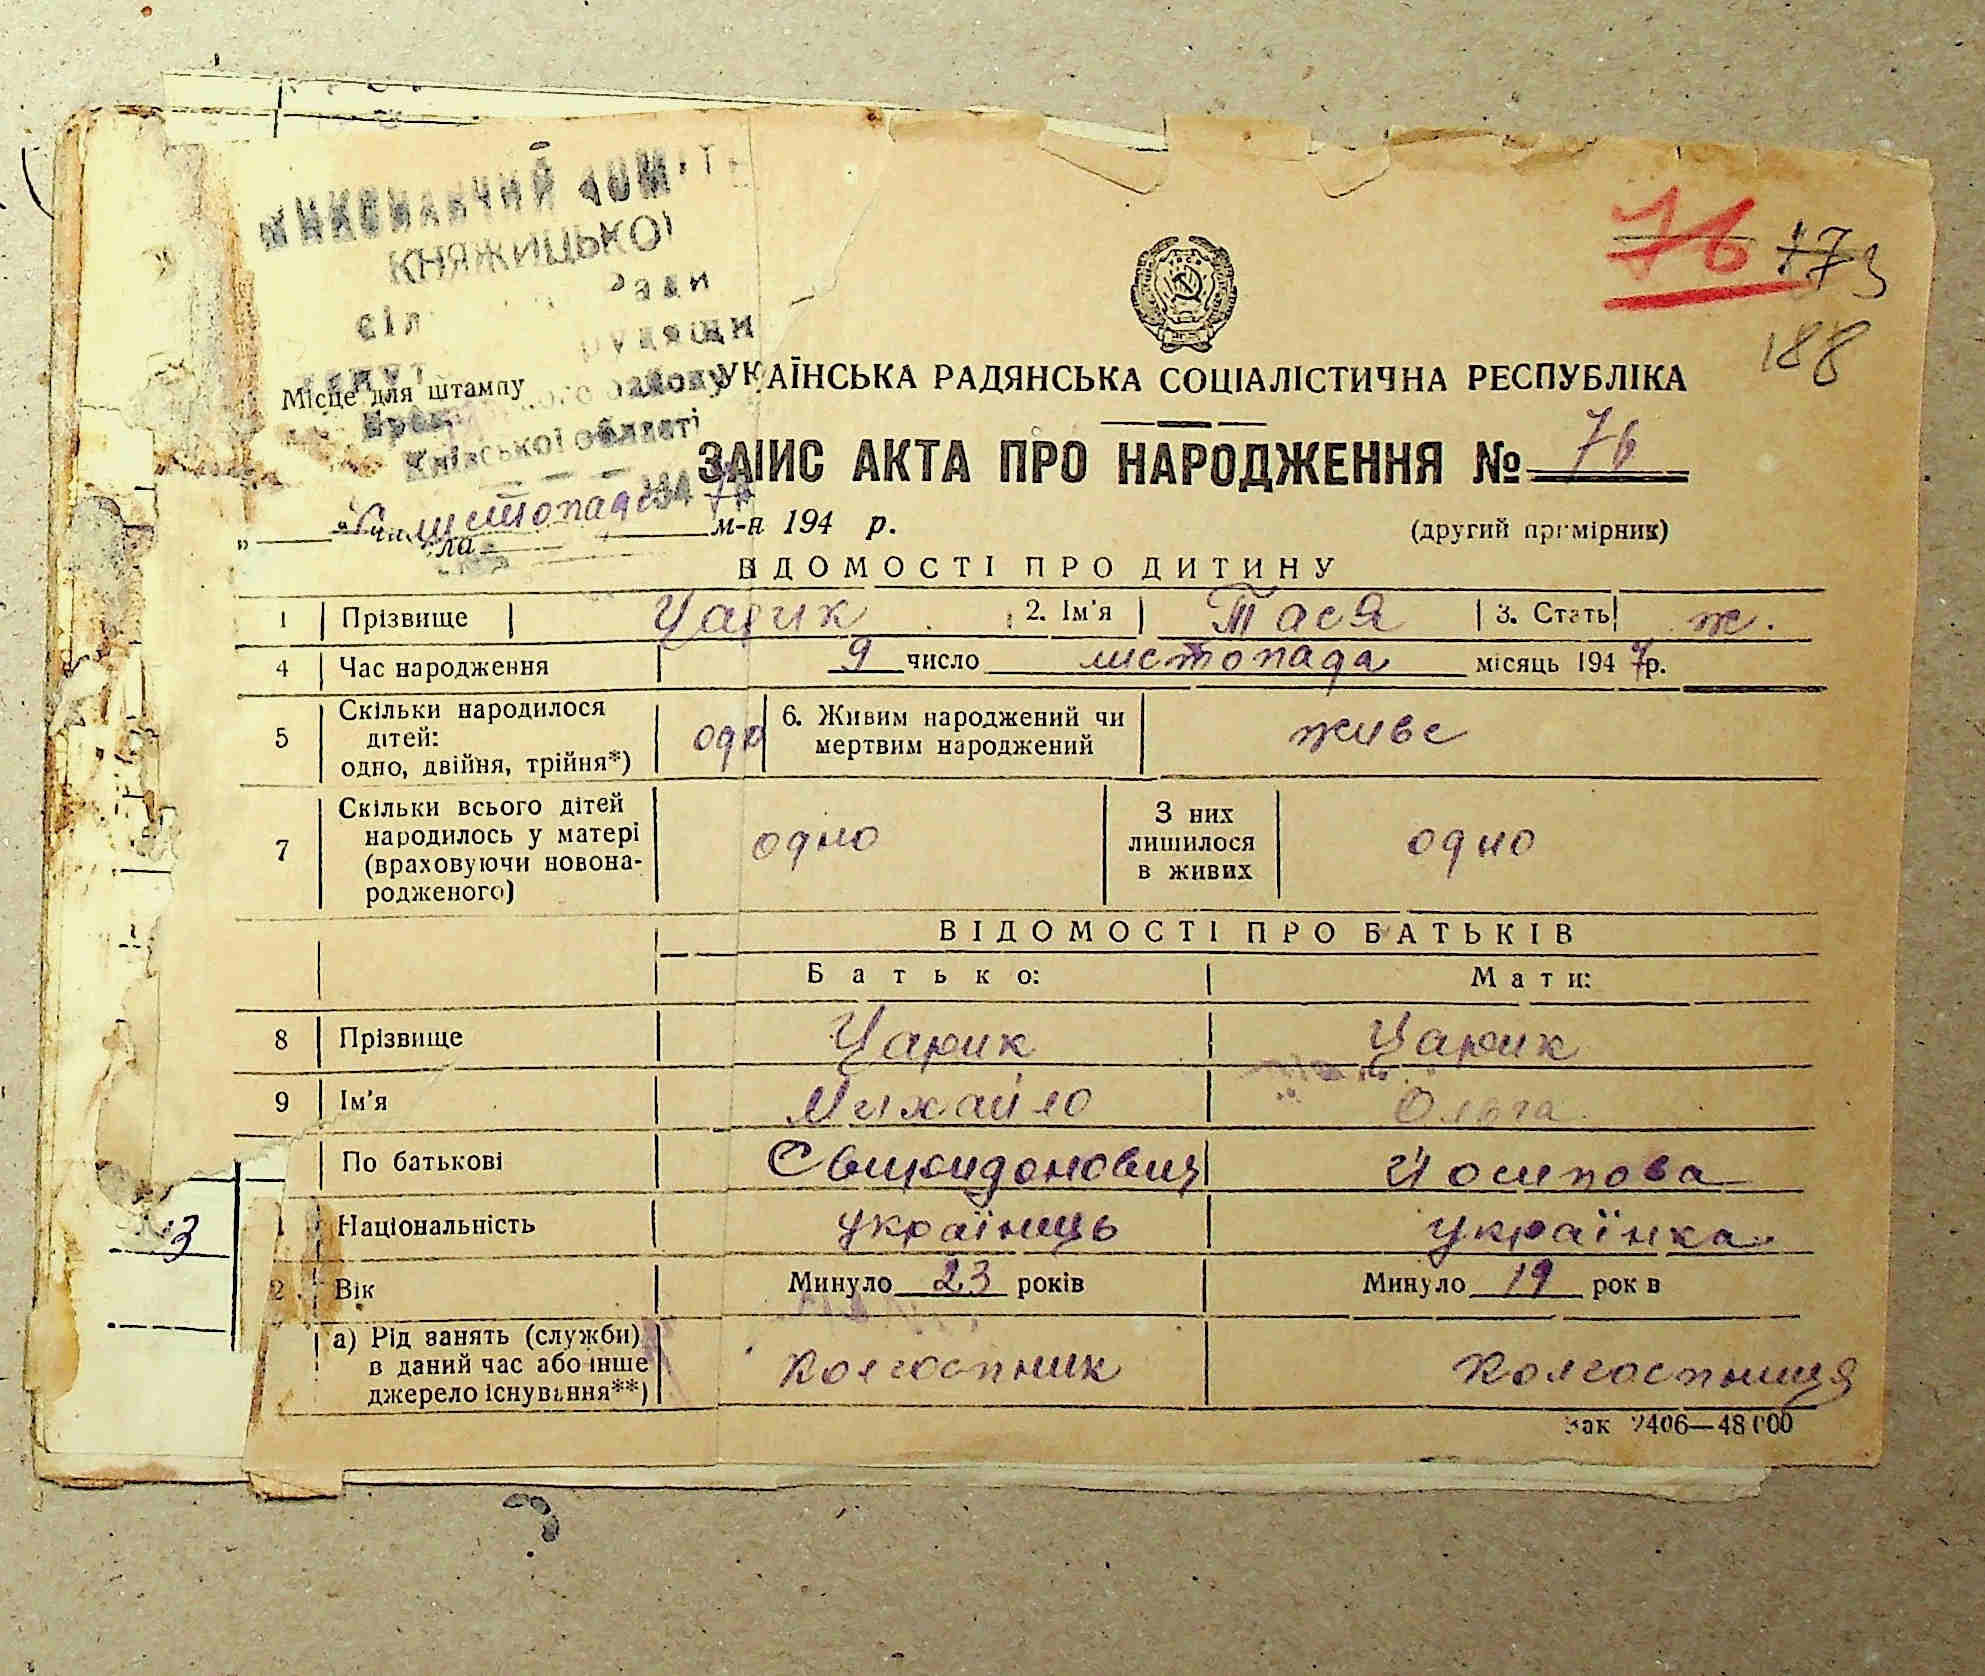 ВИКОНАВЧИЙ КОМІТЕТ
КНЯЖИЦЬКОЇ
Ради
Місце для штампу
Київської області
листопада 1947
м-я 194 р.
76 173
188
УКРАЇНСЬКА РАДЯНСЬКА СОЦІАЛІСТИЧНА РЕСПУБЛІКА
ЗАПИС АКТА ПРО НАРОДЖЕННЯ № 76
(другий примірник)
ВІДОМОСТІ ПРО ДИТИНУ
1 Прізвище Царик 2. Ім'я Тася 3. Стать ж.
4 Час народження 9 число листопада місяць 1947 р.
5 Скільки народилося
дітей:
одно, двійня, трійня*) одно 6. Живим народжений чи
мертвим народжений живе
7 Скільки всього дітей
народилось у матері
(враховуючи новона-
родженого) одно З них
лишилося
в живих одно
ВІДОМОСТІ ПРО БАТЬКІВ
Батько: Мати:
8 Прізвище Царик Царик
9 Ім'я Михайло Ольга
По батькові Свиридонович Йосипова
Національність українець українка
2 Вік Минуло 23 років Минуло 19 років
а) Рід занять (служби)
в даний час або інше
джерело існування**) Колгоспник Колгоспниця
Зак 2406—48000
3